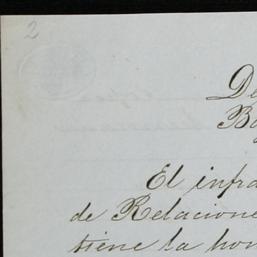 2
De
Bo
El infra
de Relacione
tiene la hon